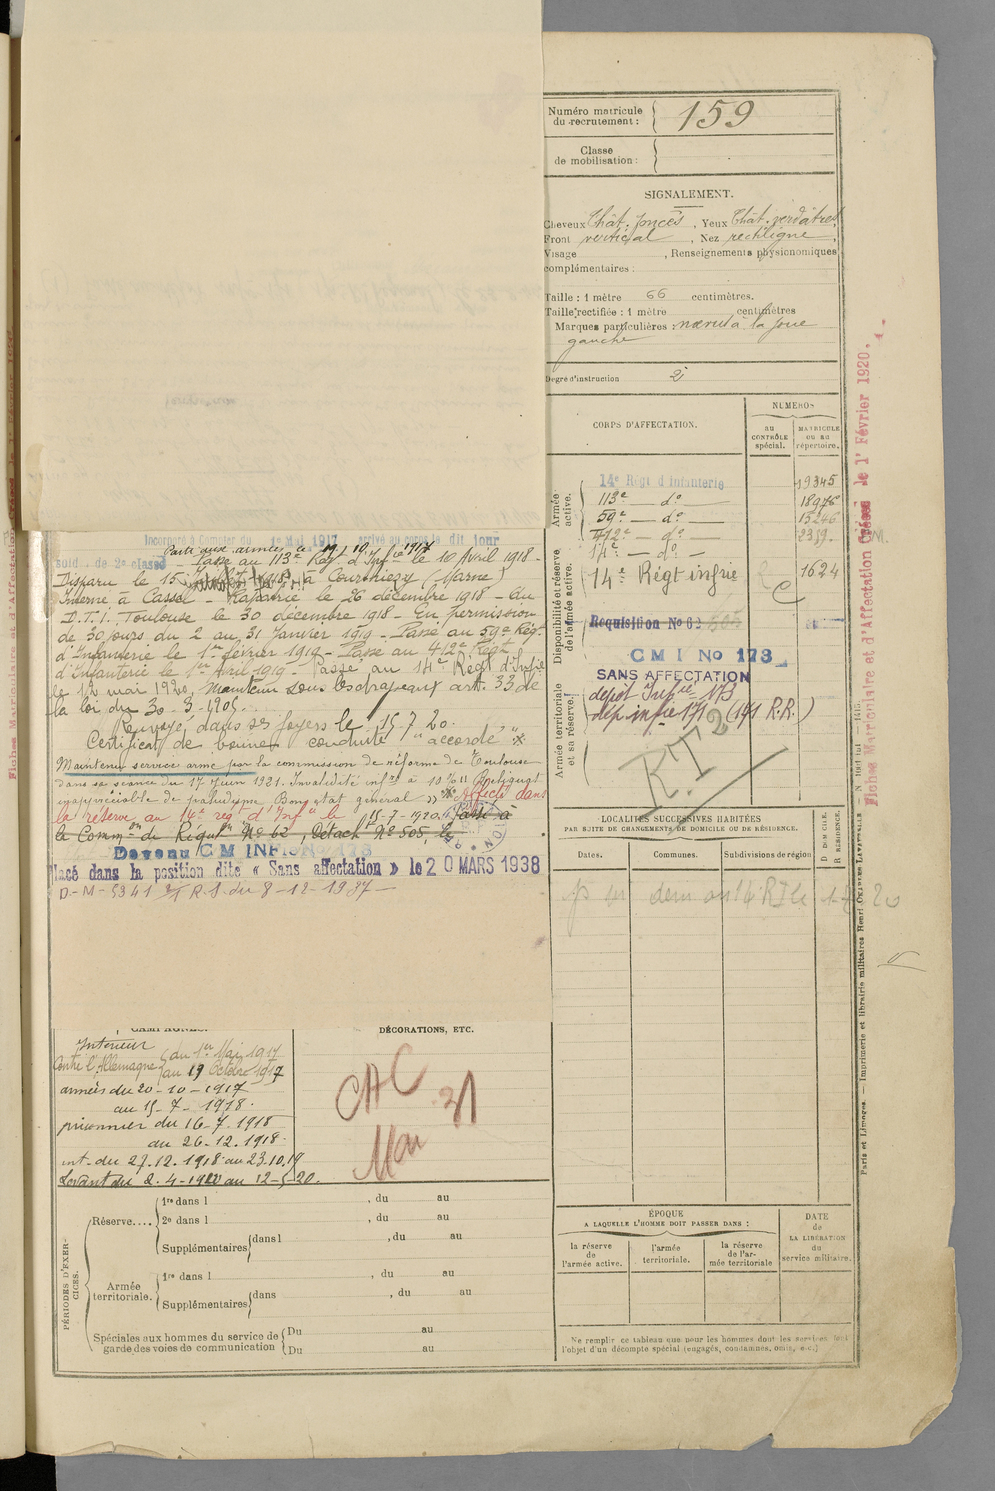 Numéro matricule
du recrutement : 159
Classe
de mobilisation :
SIGNALEMENT.
Cheveux Chât. foncés, Yeux Chât. verdâtres
Front vertical, Nez rectiligne
Visage , Renseignements physionomiques
complémentaires :
Taille : 1 mètre 66 centimètres.
Taille rectifiée : 1 mètre centimètres
Marques particulières : nœvus à la joue
gauche
Degré d'instruction 2
CORPS D'AFFECTATION.
NUMÉROS
AU CONTRÔLE spécial.
MATRICULE ou au répertoire.
Armée active.
14e Régt d'Infanterie 19345
113e — do — 18976
59e — do — 15246
412e — do — 2359
14e — do —
Disponibilité et réserve de l'armée active.
14e Régt infrie 1624
Réquisition No 62 505
C M I No 173
SANS AFFECTATION
Armée territoriale et sa réserve.
dépôt Infrie 173
dép. infie 171 (171 R.R.)
LOCALITÉS SUCCESSIVES HABITÉES
PAR SUITE DE CHANGEMENTS DE DOMICILE OU DE RÉSIDENCE.
Dates.
Communes.
Subdivisions de région
D DOMICILE.
R RÉSIDENCE.
ÉPOQUE
A LAQUELLE L'HOMME DOIT PASSER DANS :
la réserve de l'armée active.
l'armée territoriale.
la réserve de l'armée territoriale
DATE
de
LA LIBÉRATION
du
service militaire.
Ne remplir ce tableau que pour les hommes dont les services font
l'objet d'un décompte spécial (engagés, condamnés, omis, etc.)
Fiches Matriculaire et d'Affectation Créées le 1r Février 1920.
Paris et Limoges. — Imprimerie et librairie militaires Henri CHARLES-LAVAUZELLE
Incorporé à Compter du 1er Mai 1917 arrivé au corps le dit jour
sold. de 2e classe Parti aux armées le 19/10/1917
Passé au 113e Rég. d'Infrie le 10 Avril 1918 -
Disparu le 15 Juillet 1918 à Courthiézy (Marne)
Interné à Cassel - Rapatrié le 26 décembre 1918 - Au
D.T.I. Toulouse le 30 décembre 1918 - En permission
de 30 jours du 2 au 31 Janvier 1919 - Passé au 59e Rég.
d'Infanterie le 1er février 1919 - Passé au 412e Régt
d'Infanterie le 1er Avril 1919 - Passé au 14e Régt d'Infie
le 12 mai 1920, Maintenu sous les drapeaux art. 33 de
la loi du 30-3-1905.
Renvoyé dans ses foyers le 15.7.20.
Certificat de bonne conduite "accordé"
Maintenu service armé par la commission de réforme de Toulouse
dans sa séance du 17 Juin 1921. Invalidité infre à 10 % "Reliquat
inappréciable de paludisme Bon état général" Affecté dans
la réserve au 14e régt d'Infie le 15-7-1920. Passé à
la Common de Réquon No 62, Détacht No 505, le
Devenu C M INFIE No 173
lacé dans la position dite « Sans affectation » le 20 MARS 1938
D-M- 5341 R.S. du 8-12-1937 -
CAMPAGNES.
Intérieur du 1er Mai 1917
au 19 Octobre 1917
Contre l'Allemagne
armées du 20-10-1917
au 15-7-1918.
prisonnier du 16-7-1918
au 26.12.1918.
int. du 27.12.1918 au 23.10.19
Levant du 2-4-1920 au 12-5-20.
DÉCORATIONS, ETC.
CAC
31
Mai
PÉRIODES D'EXERCICES.
Réserve....
1re dans l , du au
2e dans l , du au
Supplémentaires dans l , du au
Armée territoriale.
1re dans l , du au
Supplémentaires dans , du au
Spéciales aux hommes du service de
garde des voies de communication
Du au
Du au